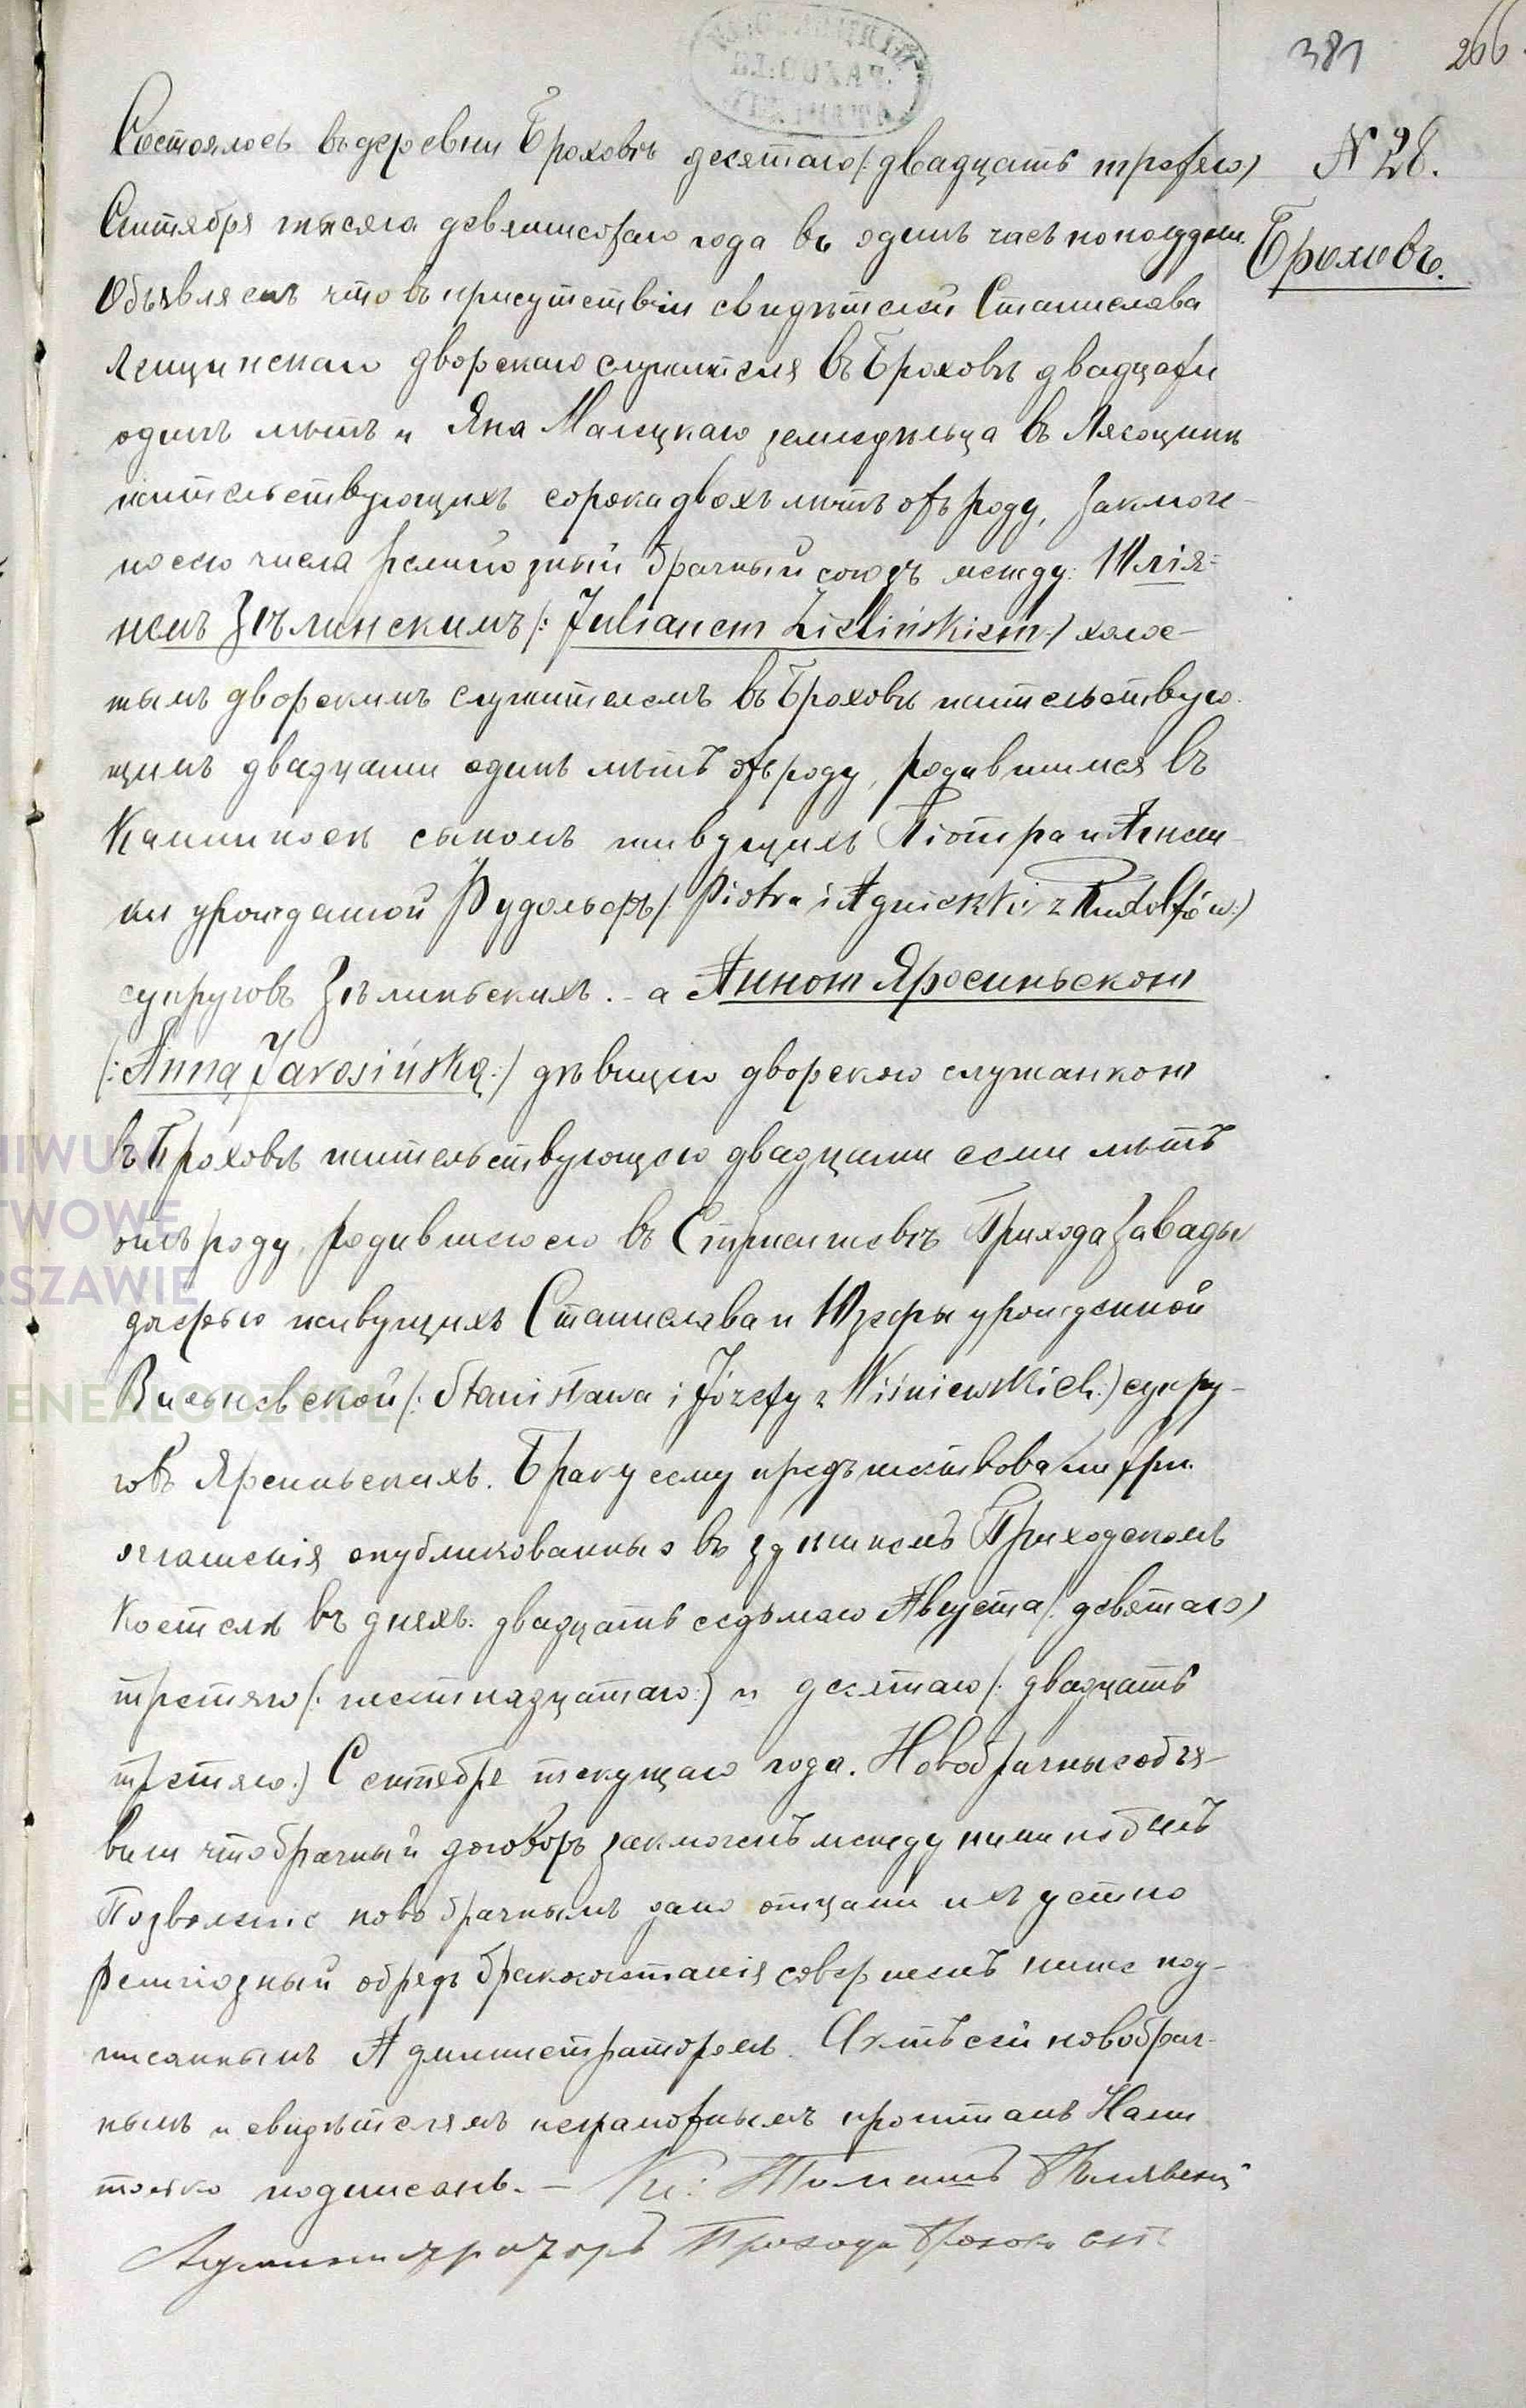 381 266
N 28.
Броховъ.
Состоялось въ деревни Броховѣ десятаго /: двадцать третяго /
Сентября тысяча девятисотаго года въ одинъ часъ пополудни.
Объявляемъ что въ присутствіи свидѣтелей Станислава
дворскаго служителя въ Броховѣ двадцати
одинъ лѣтъ и Яна Малецкаго земледѣльца въ Лясоцинѣ
жительствующихъ сорока двохъ лѣтъ отъ роду, заключе-
но сего числа религіозный брачный союзъ между: Юлія-
немъ Зѣлинскимъ /: Julianem Zielińskiem :/ холос-
тымъ дворскимъ служителемъ въ Броховѣ жительствую-
щимъ двадцати одинъ лѣтъ отъ роду, родившимся въ
сыномъ живущихъ Піотра и Агнеш-
ки урожденной Рудольфъ /: Piotra i Agnieszki z Rudolfów :/
супруговъ Зѣлиньскихъ. - а Анною Яросиньскою
/: Anną Jarosińską :/ дѣвицею дворскою служанкою
въ Броховѣ жительствующею двадцати семи лѣтъ
отъ роду, родившеюся въ Прихода Завады
дочерью живущихъ Станислава и Юзефы урожденной
Висьневской /: Stanisława i Józefy z Wiśniewskich :/ супру-
говъ Яросиньскихъ. Браку сему предъшествовали три
оглашенія опубликованныя въ здѣшнемъ Приходскомъ
Костелѣ въ дняхъ: двадцать седьмаго Августа /: девятаго /
третяго /: шестнадцатаго :/ и десятаго /: двадцать
третяго :/ Сентября текущаго года. Новобрачные объя-
вили что брачный договоръ заключенъ между ними небылъ
Позволеніе новобрачнымъ дано отцами ихъ устно
религіозный обрядъ бракосочетанія совершенъ ниже под-
писаннымъ Администраторомъ. Актъ сей новобрач-
нымъ и свидѣтелямъ неграмотнымъ прочитанъ Нами
только подписанъ. - Кс: Томашъ
Администраторъ Прихода